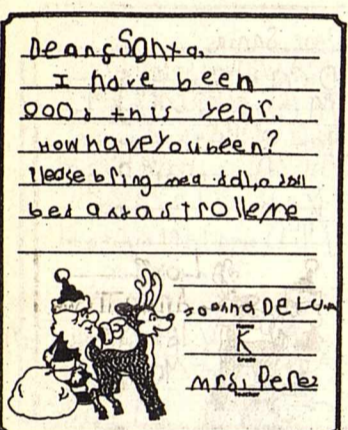 Deang Santa,
I have been
good this year.
How have you been?
Please bring mea ddl, a doll
bed andastrolleme
Joanna DeLuna
Name
K
Grade
Mrs. Perez
Teacher